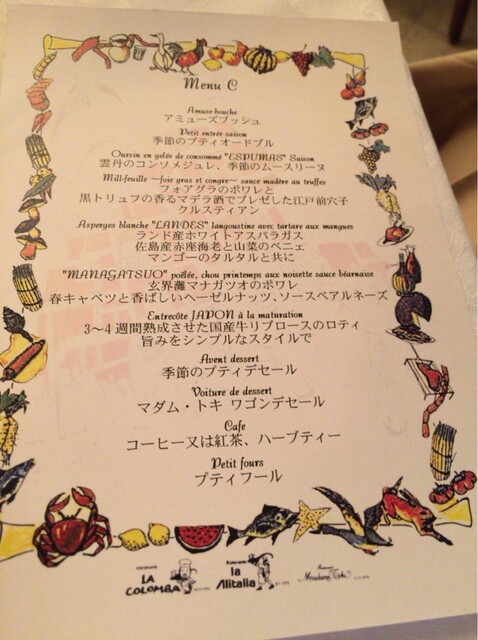 Menu C
Amuse-bouche
アミューズブッシュ
Petit entrée saison
季節のプティオードブル
Ourzin en gelée de consommé "ESPUMAS" Saison
雲丹のコンソメジュレ、季節のムースリーヌ
Mill-feuille ～foie gras et congre～ sauce madère au truffes
フォアグラのポワレと
黒トリュフの香るマデラ酒でブレゼした江戸前穴子
クルスティアン
Asperges blanche "LANDES" langoustine avec tartare aux mangues
ランド産ホワイトアスパラガス
佐島産赤座海老と山菜のベニェ
マンゴーのタルタルと共に
"MANAGATSUO" poêlée, chou printemps aux noisette sauce béarnaise
玄界灘マナガツオのポワレ
春キャベツと香ばしいヘーゼルナッツ、ソースベアルネーズ
Entrecôte JAPON à la maturation
3～4週間熟成させた国産牛リブロースのロティ
旨みをシンプルなスタイルで
Avent dessert
季節のプティデセール
Voiture de dessert
マダム・トキ ワゴンデセール
Cafe
コーヒー又は紅茶、ハーブティー
Petit fours
プティフール
RISTORANTE
LA COLOMBA
Ristorante
la Alitalia
Madame Toki